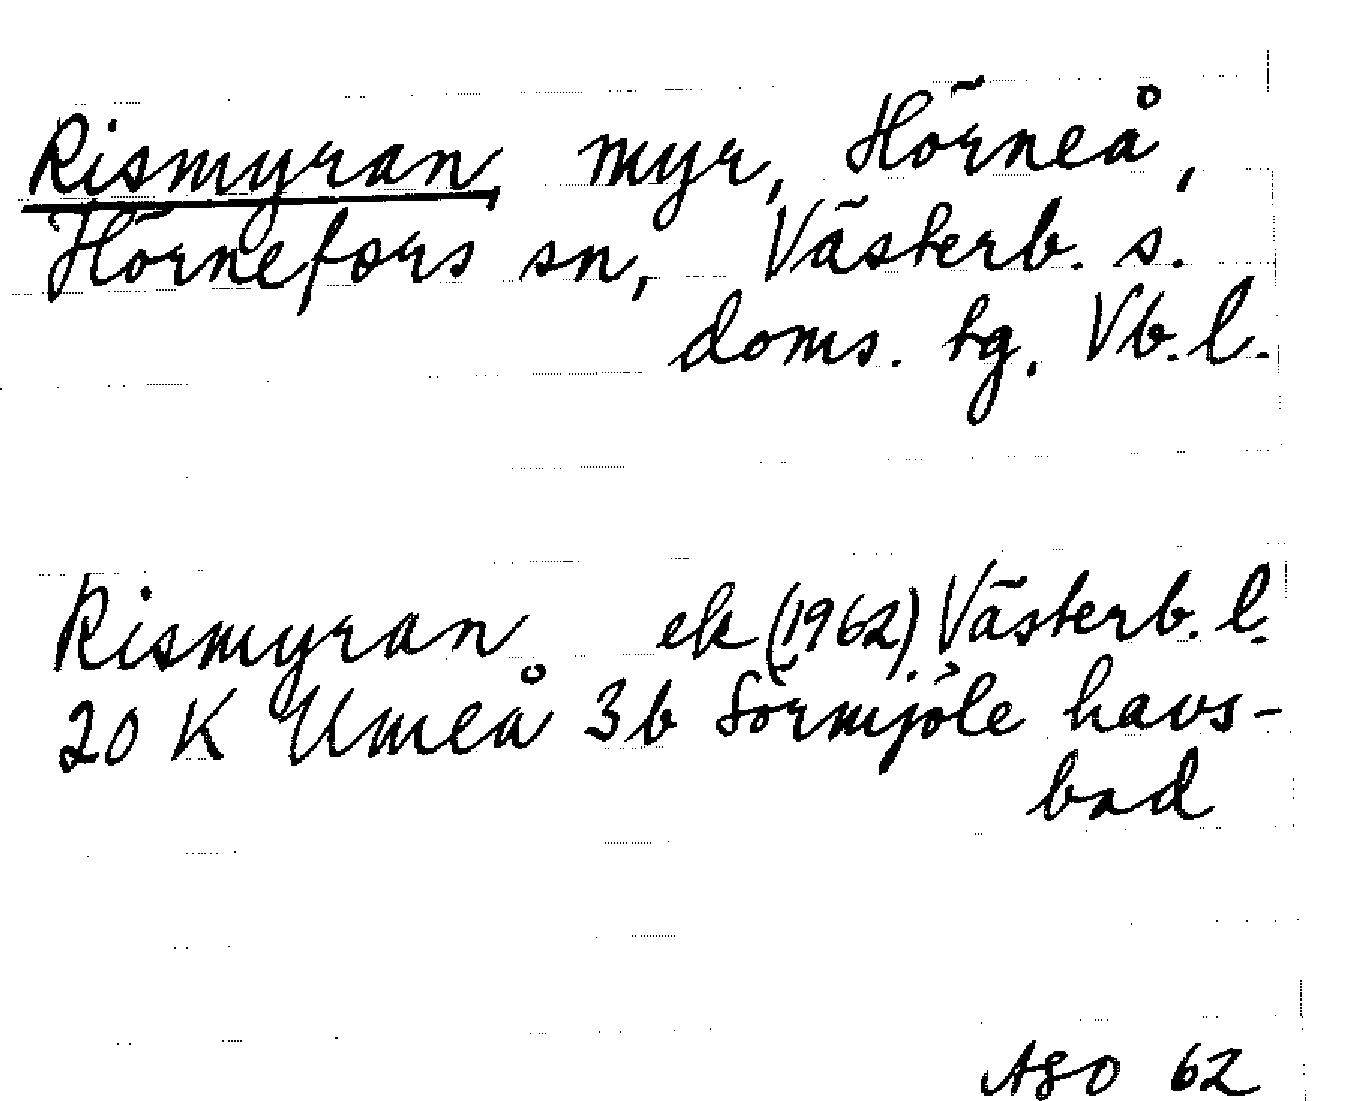 Rismyran, myr, Hörneå,
Hörnefors sn, Västerb. s.
doms. tg. Vb. l.
Rismyran ek (1962) Västerb. l.
20 K Umeå 3b Sörmjöle havs-
bad
ASO 62